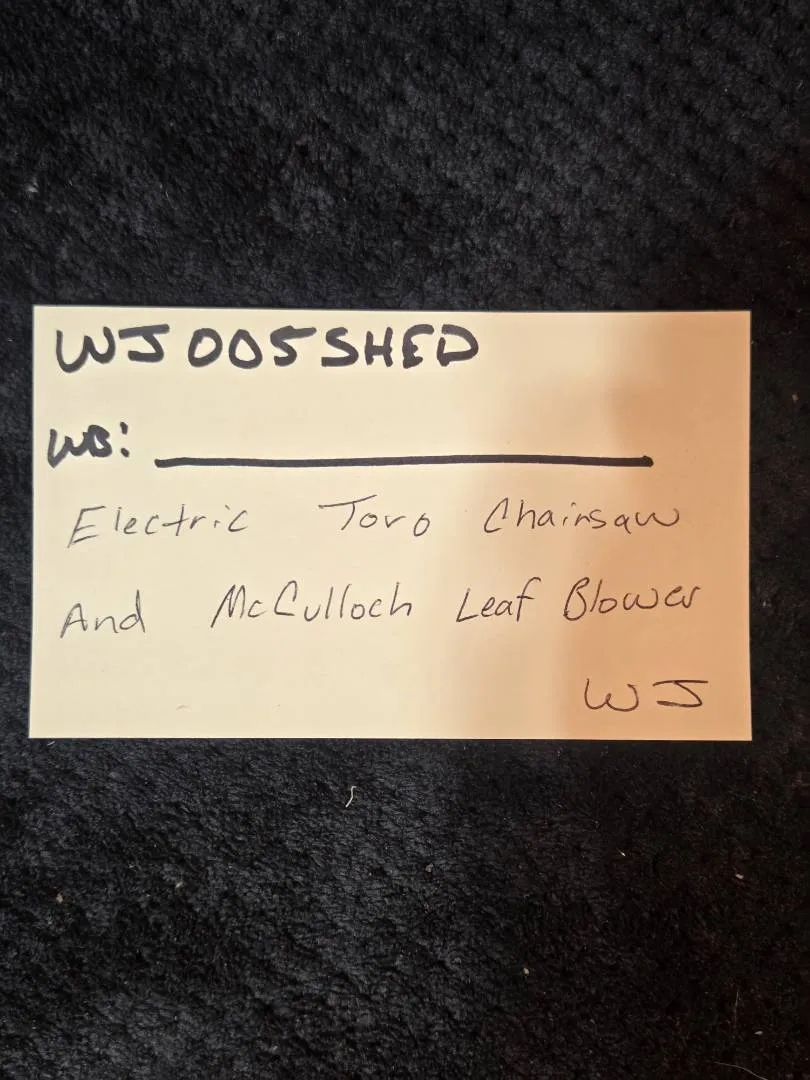 WJ005SHED
WB:
Electric Toro Chainsaw
And McCulloch Leaf Blower
WJ